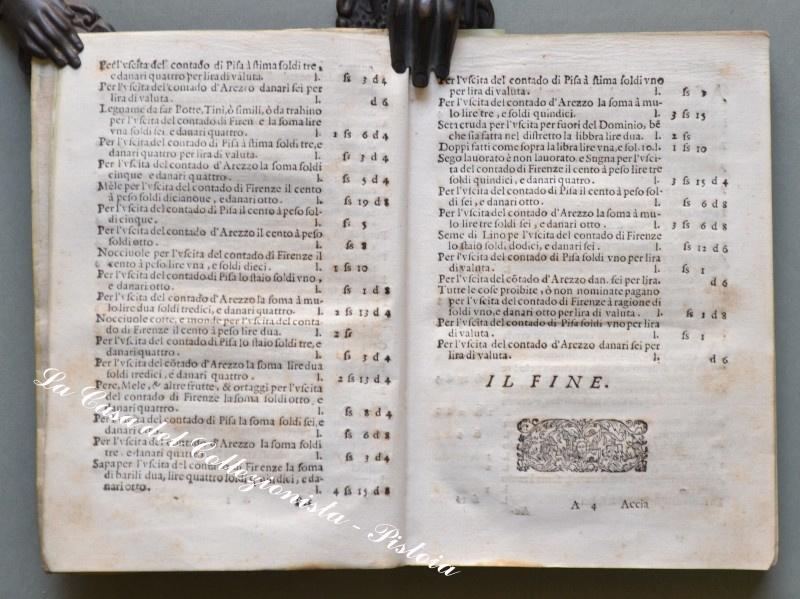 Per l'vscita del contado di Pisa à stima soldi tre,
e danari quattro per lira di valuta. l. ss 3 d 4
Per l'vscita del contado d'Arezo danari sei per
lira di valuta. d 6
Legname da far Botte, Tini, ò simili, ò da trahino
per l'vscita del contado di Firen e la soma lire
vna soldi sei, e danari quattro. l. 1 ss 6 d 4
Per l'vscita del contado di Pisa à stima soldi tre, e
danari quattro per lira di valuta. l. ss 3 d 4
Per l'vscita del contado d'Arezzo la soma soldi
cinque e danari quattro. l. ss 5 d 4
Mele per l'vscita del contado di Firenze il cento
à peso soldi dicianoue, e danari otto. l. ss 19 d 8
Per l'vscita del contado di Pisa il cento à peso sol-
di cinque. l. ss 5
Per l'vscita del contado d'Arezzo il cento à peso
soldi otto. l. ss 8
Nocciuole per l'vscita del contado di Firenze il
cento à peso lire vna, e soldi dieci. l. 1 ss 10
Per l'vscita del contado di Pisa lo staio soldi vno,
e danari otto. l. ss 1 d 8
Per l'vscita del contado d'Arezzo la soma à mu-
lo lire dua soldi tredici, e danari quattro. l. 2 ss 13 d 4
Nocciuole cotte, e monde per l'vscita del conta
do di Firenze il cento à peso lire dua. l. 2 ss
Per l'vscita del contado di Pisa lo staio soldi tre, e
danari quattro. l. ss 3 d 4
Per l'vscita del cōtado d'Arezzo la soma lire dua
soldi tredici, e danari quattro. l. 2 ss 13 d 4
Pere, Mele, & altre frutte, & ortaggi per l'vscita
del contado di Firenze la soma soldi otto, e
danari quattro. l. ss 8 d 4
Per l'vscita del contado di Pisa la soma soldi sei, e
danari otto. l. ss 6 d 8
Per l'vscita del contado d'Arezzo la soma soldi
tre, e danari quattro. l. ss 3 d 4
Sapa per l'vscita del contado di Firenze la soma
di barili dua, lire quattro soldi quindici, e da-
nari otto. l. 4 ss 15 d 8
Per l'vscita del contado di Pisa à stima soldi vno
per lira di valuta. l. ss 1
Per l'vscita del contado d'Arezzo la soma à mu-
lo lire tre, e soldi quindici. l. 3 ss 15
Seta cruda per l'vscita per fuori del Dominio, bē
che sia fatta nel distretto la libbra lire dua. l. 2 ss
Doppi fatti come sopra la libra lire vna, e sol. 10. l. 1 ss 10
Sego lauorato è non lauorato, e Sugna per l'vsci-
ta del contado di Firenze il cento à peso lire tre
soldi quindici, e danari quattro. l. 3 ss 15 d 4
Per l'vscita del contado di Pisa il cento à peso sol-
di sei, e danari otto. l. ss 6 d 8
Per l'vscita del contado d'Arezzo la soma à mu-
lo lire tre soldi sei, e danari otto. l. 3 ss 6 d 8
Seme di Lino pe l'vscita del contado di Firenze
lo staio soldi dodici, e danari sei. l. ss 12 d 6
Per l'vscita del contado di Pisa soldi vno per lira
di valuta. l. ss 1
Per l'vscita del cōtado d'Arezzo dan. sei per lira. d 6
Tutte le cose proibite, ò non nominate pagano
per l'vscita del contado di Firenze à ragione di
soldi vno, e danari otto per lira di valuta. l. ss 1 d 8
Per l'vscita del contado di Pisa soldi vno per lira
di valuta. l. ss 1
Per l'vscita del contado d'Arezzo danari sei per
lira di valuta. l. d 6
IL FINE.
A 4 Accia
La Casa del Collezionista - Pistoia